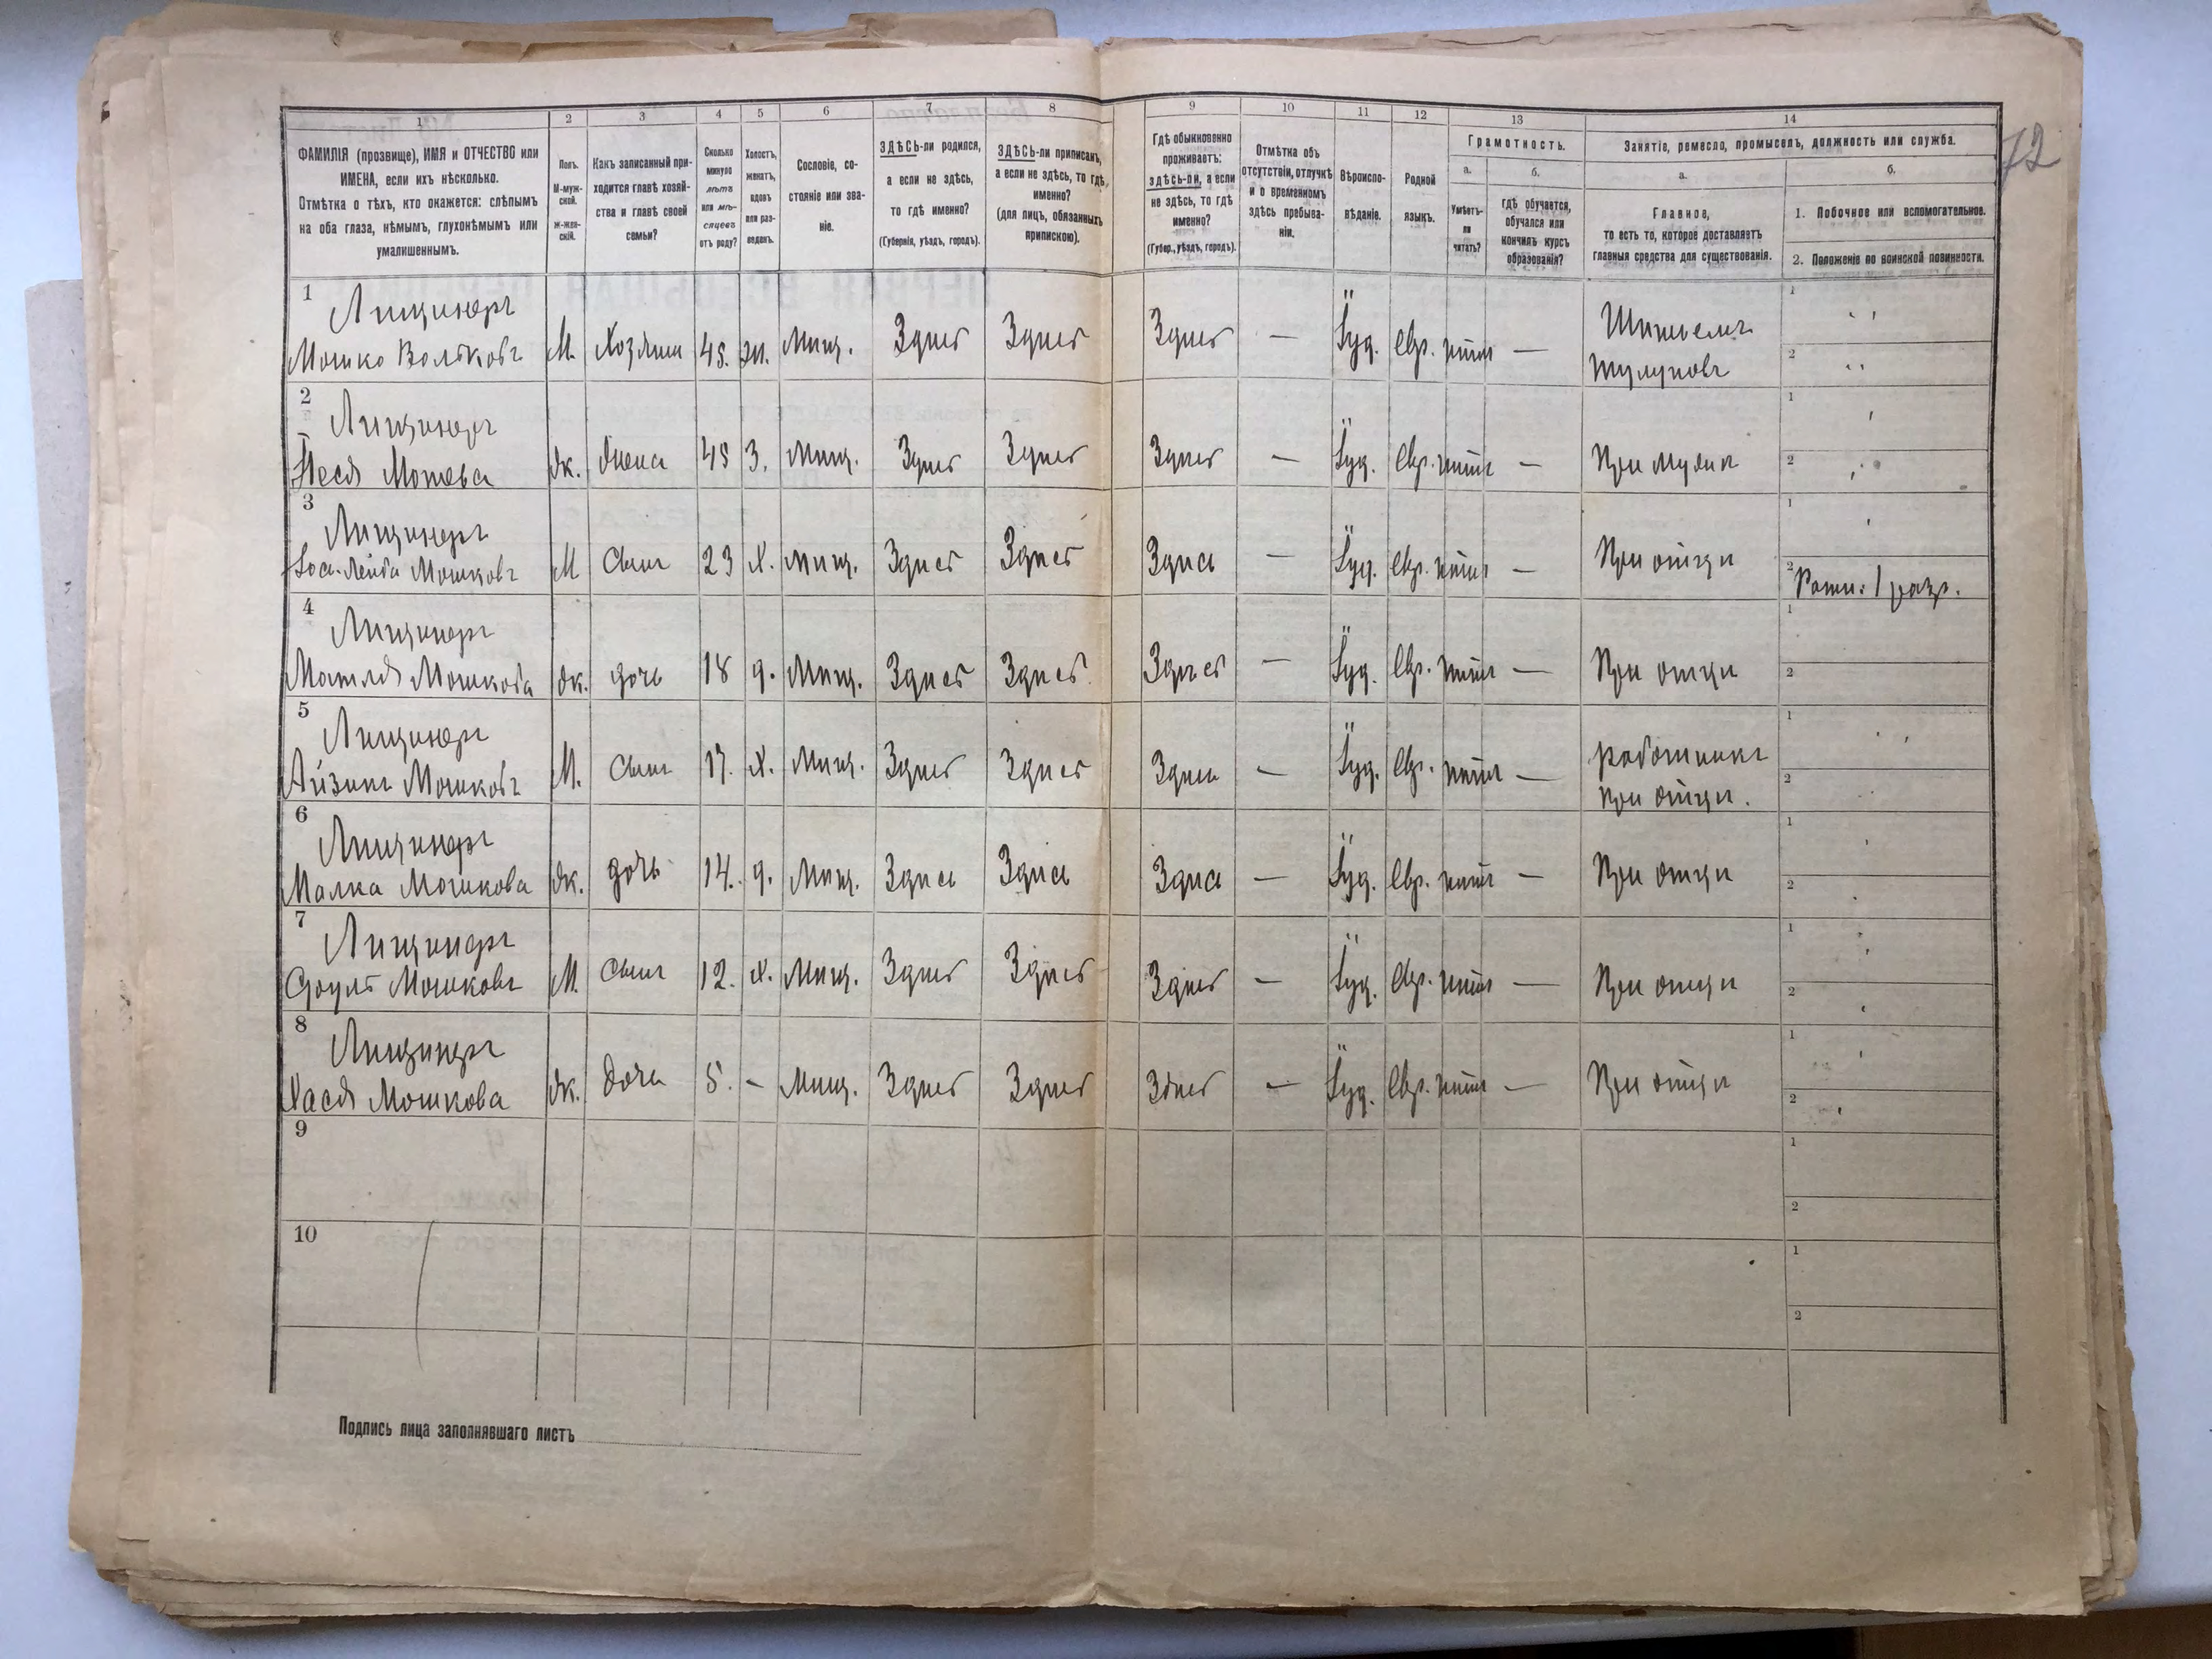 72
1 2 3 4 5 6 7 8 9 10 11 12 13 14
ФАМИЛІЯ (прозвище), ИМЯ и ОТЧЕСТВО или
ИМЕНА, если ихъ нѣсколько.
Отмѣтка о тѣхъ, кто окажется: слѣпымъ
на оба глаза, нѣмымъ, глухонѣмымъ или
умалишеннымъ.
Полъ.
М-муж-
ской.
Ж-жен-
скій.
Какъ записанный при-
ходится главѣ хозяй-
ства и главѣ своей
семьи?
Сколько
минуло
лѣтъ
или мѣ-
сяцевъ
отъ роду?
Холостъ,
женатъ,
вдовъ
или раз-
веденъ.
Сословіе, со-
стояніе или зва-
ніе.
ЗДѢСЬ-ли родился,
а если не здѣсь,
то гдѣ именно?
(Губернія, уѣздъ, городъ).
ЗДѢСЬ-ли приписанъ,
а если не здѣсь, то гдѣ
именно?
(для лицъ, обязанныхъ
припискою).
Гдѣ обыкновенно
проживаетъ:
здѣсь-ли, а если
не здѣсь, то гдѣ
именно?
(Губер., уѣздъ, городъ).
Отмѣтка объ
отсутствіи, отлучкѣ
и о временномъ
здѣсь пребыва-
ніи.
Вѣроиспо-
вѣданіе.
Родной
языкъ.
Грамотность.
а.
Умѣетъ-
ли
читать?
б.
гдѣ обучается,
обучался или
кончилъ курсъ
образованія?
Занятіе, ремесло, промыселъ, должность или служба.
а.
Главное,
то есть то, которое доставляетъ
главныя средства для существованія.
б.
1. Побочное или вспомогательное.
2. Положеніе по воинской повинности.
1
Лищинеръ
Мошко Вольковъ М. Хозяинъ 45. ж. Мѣщ. Здѣсь Здѣсь Здѣсь — Іуд. Евр. нѣтъ —
тулуповъ
1
2
2
Лищинеръ
Песя Мошева ж. жена 45 З. Мѣщ. Здѣсь Здѣсь Здѣсь — Іуд. Евр. нѣтъ — При мужѣ
1
2
3
Лищинеръ
Лейба Мошковъ М Сынъ 23 Х. Мѣщ. Здѣсь Здѣсь Здѣсь — Іуд. Евр. нѣтъ — При отцѣ
1
2
Ратн. 1 разр.
4
Лищинеръ
Мошкова ж. дочь 18 д. Мѣщ. Здѣсь Здѣсь Здѣсь — Іуд. Евр. нѣтъ — При отцѣ
1
2
5
Лищинеръ
Айзикъ Мошковъ М. Сынъ 17. Х. Мѣщ. Здѣсь Здѣсь Здѣсь — Іуд. Евр. нѣтъ — Работникъ
при отцѣ.
1
2
6
Лищинеръ
Малка Мошкова ж. дочь 14. д. Мѣщ. Здѣсь Здѣсь Здѣсь — Іуд. Евр. нѣтъ — При отцѣ
1
2
7
Лищинеръ
Сруль Мошковъ М. Сынъ 12. Х. Мѣщ. Здѣсь Здѣсь Здѣсь — Іуд. Евр. нѣтъ — При отцѣ
1
2
8
Лищинеръ
Хася Мошкова ж. дочь 5. – Мѣщ. Здѣсь Здѣсь Здѣсь — Іуд. Евр. нѣтъ — При отцѣ
1
2
9
1
2
10
1
2
Подпись лица заполнявшаго листъ